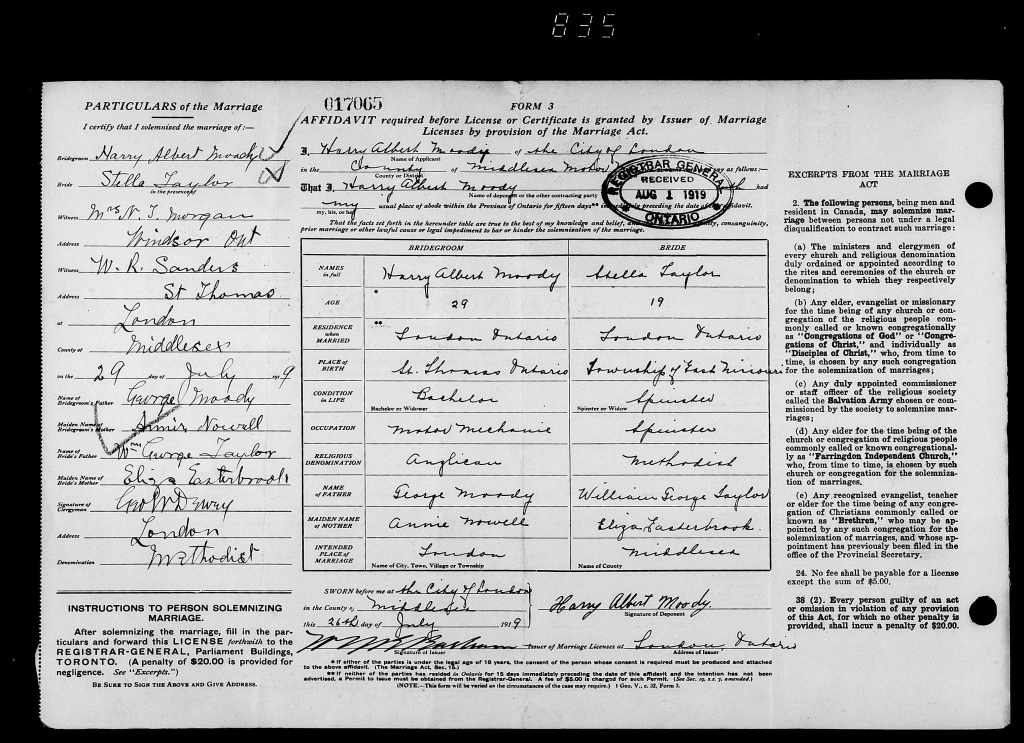 835
PARTICULARS of the Marriage
I certify that I solemnized the marriage of:—
Bridegroom Harry Albert Moody
Bride Stella Taylor
in the presence of
Witness Mrs N. T. Morgan
Address Windsor Ont
Witness W. R. Sanders
Address St Thomas
at London
County of Middlesex
on the 29 day of July 1919
Name of Bridegroom's Father George Moody
Maiden Name of Bridegroom's Mother Annie Nowell
Name of Bride's Father Wm George Taylor
Maiden Name of Bride's Mother Eliza Easterbrook
Signature of Clergyman Geo W Dewey
Address London
Denomination Methodist
INSTRUCTIONS TO PERSON SOLEMNIZING
MARRIAGE.
After solemnizing the marriage, fill in the par-
ticulars and forward this LICENSE forthwith to the
REGISTRAR-GENERAL, Parliament Buildings,
TORONTO. (A penalty of $20.00 is provided for
negligence. See "Excerpts.")
BE SURE TO SIGN THE ABOVE AND GIVE ADDRESS.
017065
FORM 3
AFFIDAVIT required before License or Certificate is granted by Issuer of Marriage
Licenses by provision of the Marriage Act.
I, Harry Albert Moody of the City of London
Name of Applicant
in the County of Middlesex Motor say as follows:—
County or District
That I, Harry Albert Moody had
Name of deponent or the other contracting party
my usual place of abode within the Province of Ontario for fifteen days** immediately preceding the date of affidavit.
my, his, or her
REGISTRAR GENERAL
RECEIVED
AUG 1 1919
ONTARIO
That the facts set forth in the hereunder table are true to the best of my knowledge and belief, consanguinity,
prior marriage or other lawful cause or legal impediment to bar or hinder the solemnization of the marriage.
BRIDEGROOM BRIDE
NAMES in full Harry Albert Moody Stella Taylor
AGE * 29 19
RESIDENCE when MARRIED ** London Ontario London Ontario
PLACE of BIRTH St. Thomas Ontario Township of East Nissouri
CONDITION in LIFE Bachelor Spinster
Bachelor or Widower Spinster or Widow
OCCUPATION Motor Mechanic Spinster
RELIGIOUS DENOMINATION Anglican Methodist
NAME of FATHER George Moody William George Taylor
MAIDEN NAME of MOTHER Annie Nowell Eliza Easterbrook.
INTENDED PLACE of MARRIAGE London Middlesex
Name of City, Town, Village or Township Name of County
SWORN before me at the City of London
in the County of Middlesex
this 26th day of July 1919
Harry Albert Moody.
Signature of Deponent
Issuer of Marriage Licenses at London Ontario
Signature of Issuer Address of Issuer
* If either of the parties is under the legal age of 18 years, the consent of the person whose consent is required must be produced and attached
to the above affidavit. (The Marriage Act, Sec. 15.)
**If neither of the parties has resided in Ontario for 15 days immediately preceding the date of this affidavit and the intention has not been
advertised, a Permit to Issue must be obtained from the Registrar-General. A fee of $5.00 is charged for such Permit. (See Sec. 19, s.s. 7, amended.)
(NOTE.—This form will be varied as the circumstances of the case may require.) 1 Geo. V., c. 32, Form 3.
EXCERPTS FROM THE MARRIAGE
ACT
2. The following persons, being men and
resident in Canada, may solemnize mar-
riage between persons not under a legal
disqualification to contract such marriage:
(a) The ministers and clergymen of
every church and religious denomination
duly ordained or appointed according to
the rites and ceremonies of the church or
denomination to which they respectively
belong;
(b) Any elder, evangelist or missionary
for the time being of any church or con-
gregation of the religious people com-
monly called or known congregationally
as "Congregations of God" or "Congre-
gations of Christ," and individually as
"Disciples of Christ," who, from time to
time, is chosen by any such congregation
for the solemnization of marriages;
(c) Any duly appointed commissioner
or staff officer of the religious society
called the Salvation Army chosen or com-
missioned by the society to solemnize mar-
riages;
(d) Any elder for the time being of the
church or congregation of religious people
commonly called or known congregational-
ly as "Farringdon Independent Church,"
who, from time to time, is chosen by such
church or congregation for the solemniza-
tion of marriages.
(e) Any recognized evangelist, teacher
or elder for the time being of any congre-
gation of Christians commonly called or
known as "Brethren," who may be ap-
pointed by any such congregation for the
solemnization of marriages, and whose ap-
pointment has previously been filed in the
office of the Provincial Secretary.
24. No fee shall be payable for a license
except the sum of $5.00.
38 (2). Every person guilty of an act
or omission in violation of any provision
of this Act, for which no other penalty is
provided, shall incur a penalty of $20.00.